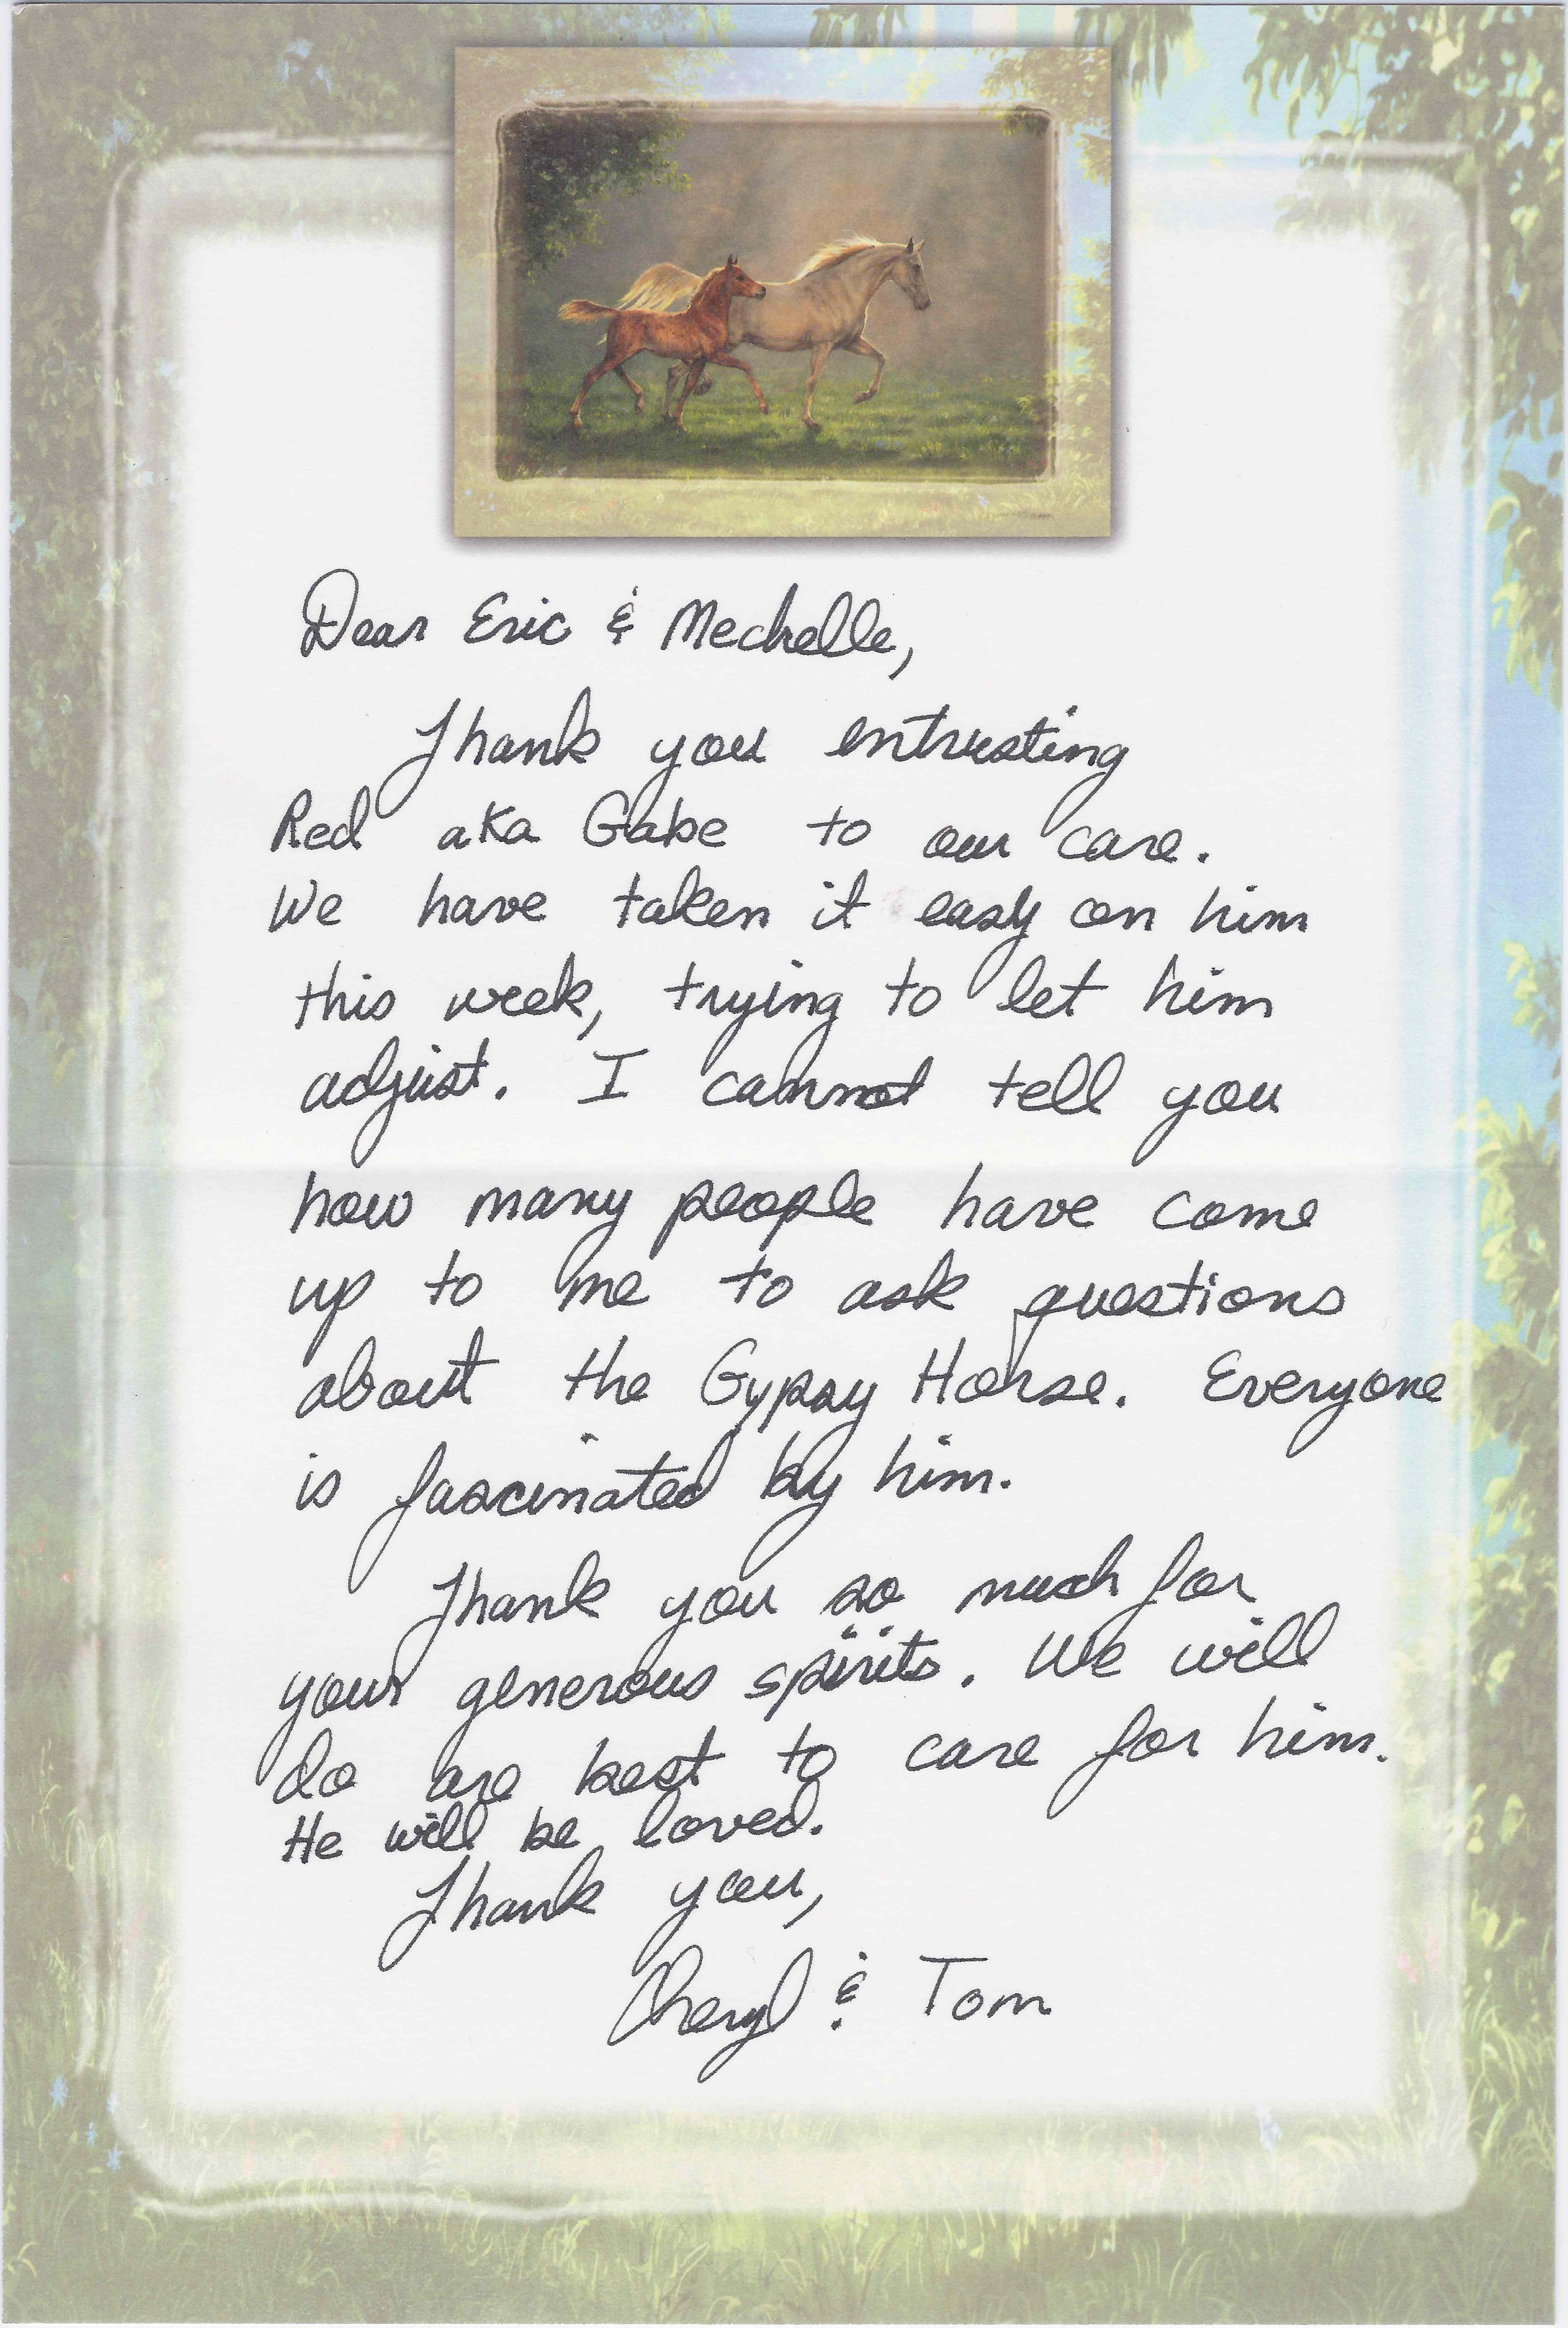 Dear Eric & Mechelle,
Thank you entrusting
Red aka Gabe to our care.
We have taken it easy on him
this week, trying to let him
adjust. I cannot tell you
how many people have come
up to me to ask questions
about the Gypsy Horse. Everyone
is fascinated by him.
Thank you so much for
your generous spirits. We will
do are best to care for him.
He will be loved.
Thank you,
Cheryl & Tom